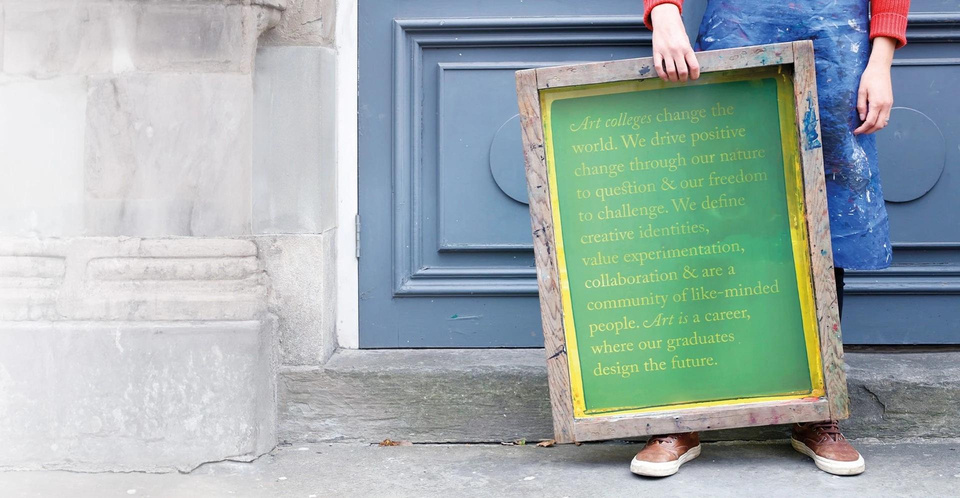 Art colleges change the
world. We drive positive
change through our nature
to question & our freedom
to challenge. We define
creative identities,
value experimentation,
collaboration & are a
community of like-minded
people. Art is a career,
where our graduates
design the future.